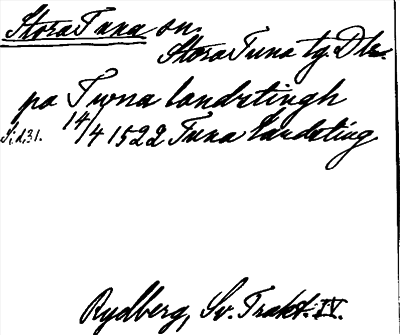 Stora Tuna sn,
Stora Tuna tg. Dlr.
pa Twna landstingh
S. 231. 14/4 1522 Tuna landsting
Rydberg, Sv. Trakt. IV.